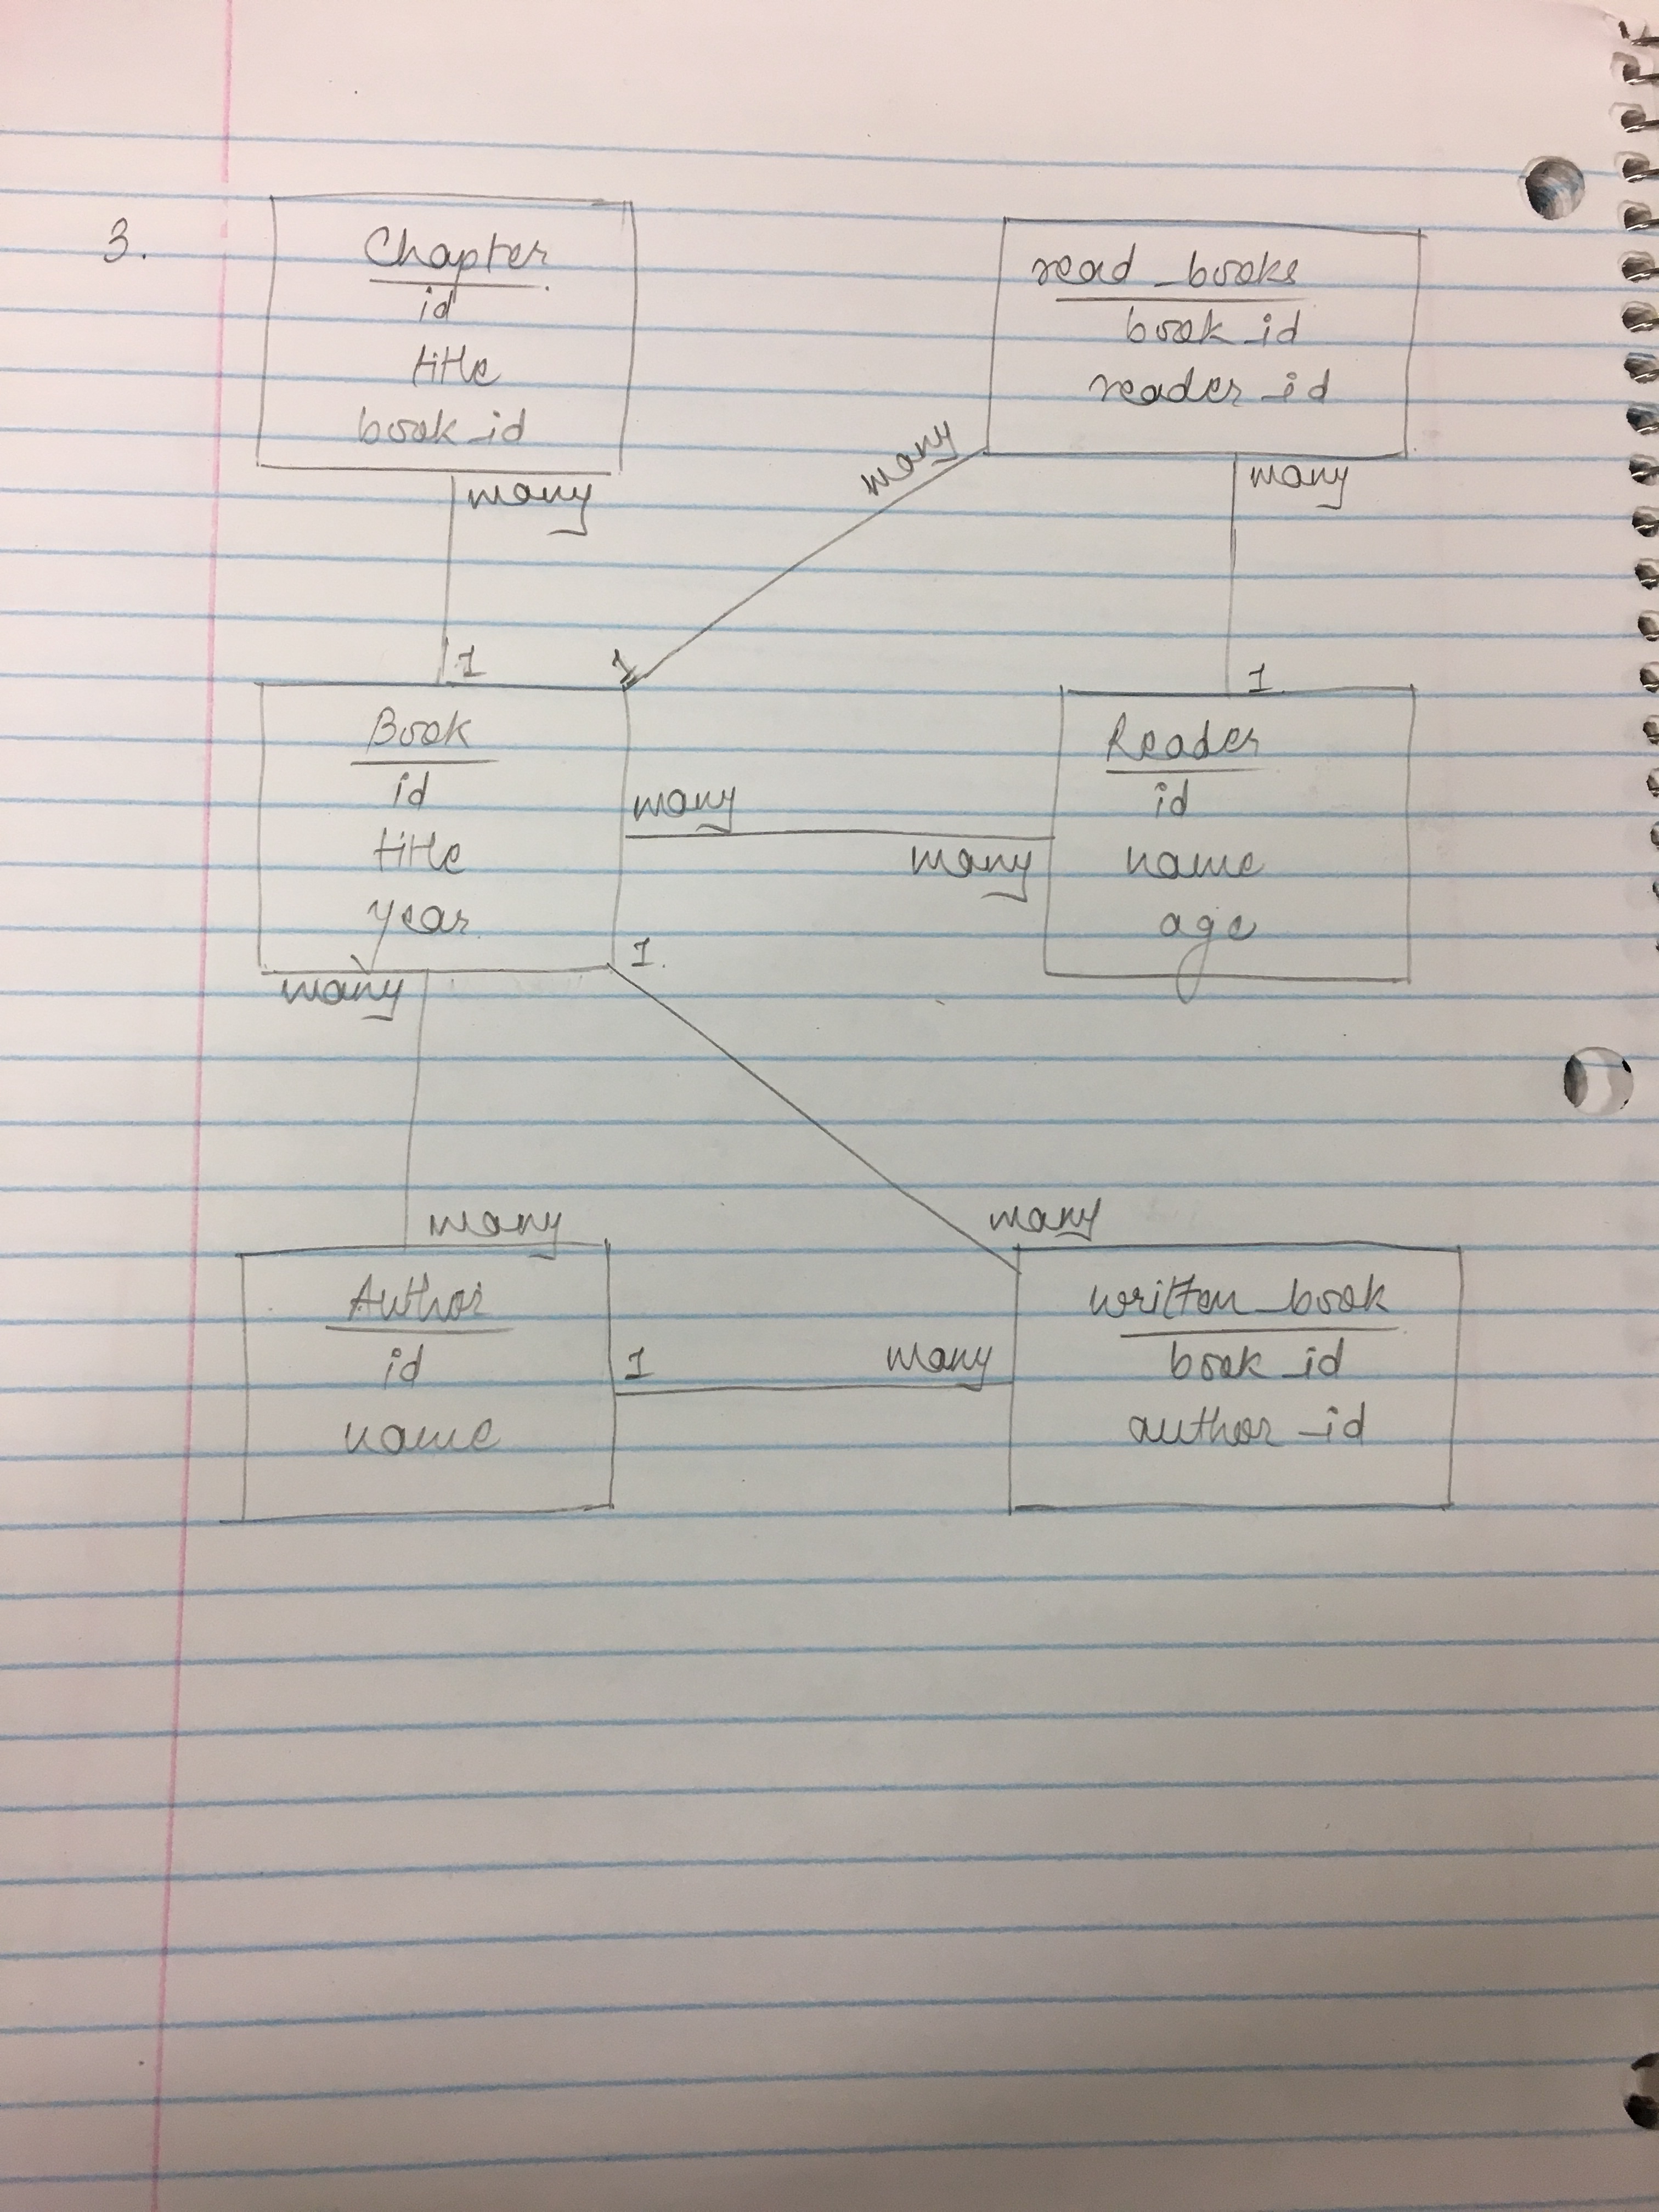 3.
Chapter
id
title
book_id
many
1
read_books
book_id
reader_id
many
many
1
1
Book
id
title
year
many
many
Reader
id
name
age
many
1
many
many
Author
id
name
1
many
written_book
book_id
author_id